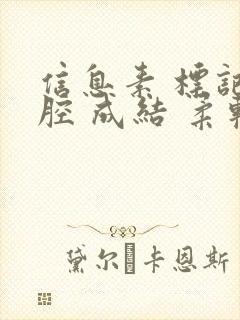 信息素 標記
腔 成結 柔軟
黛尔·卡恩斯